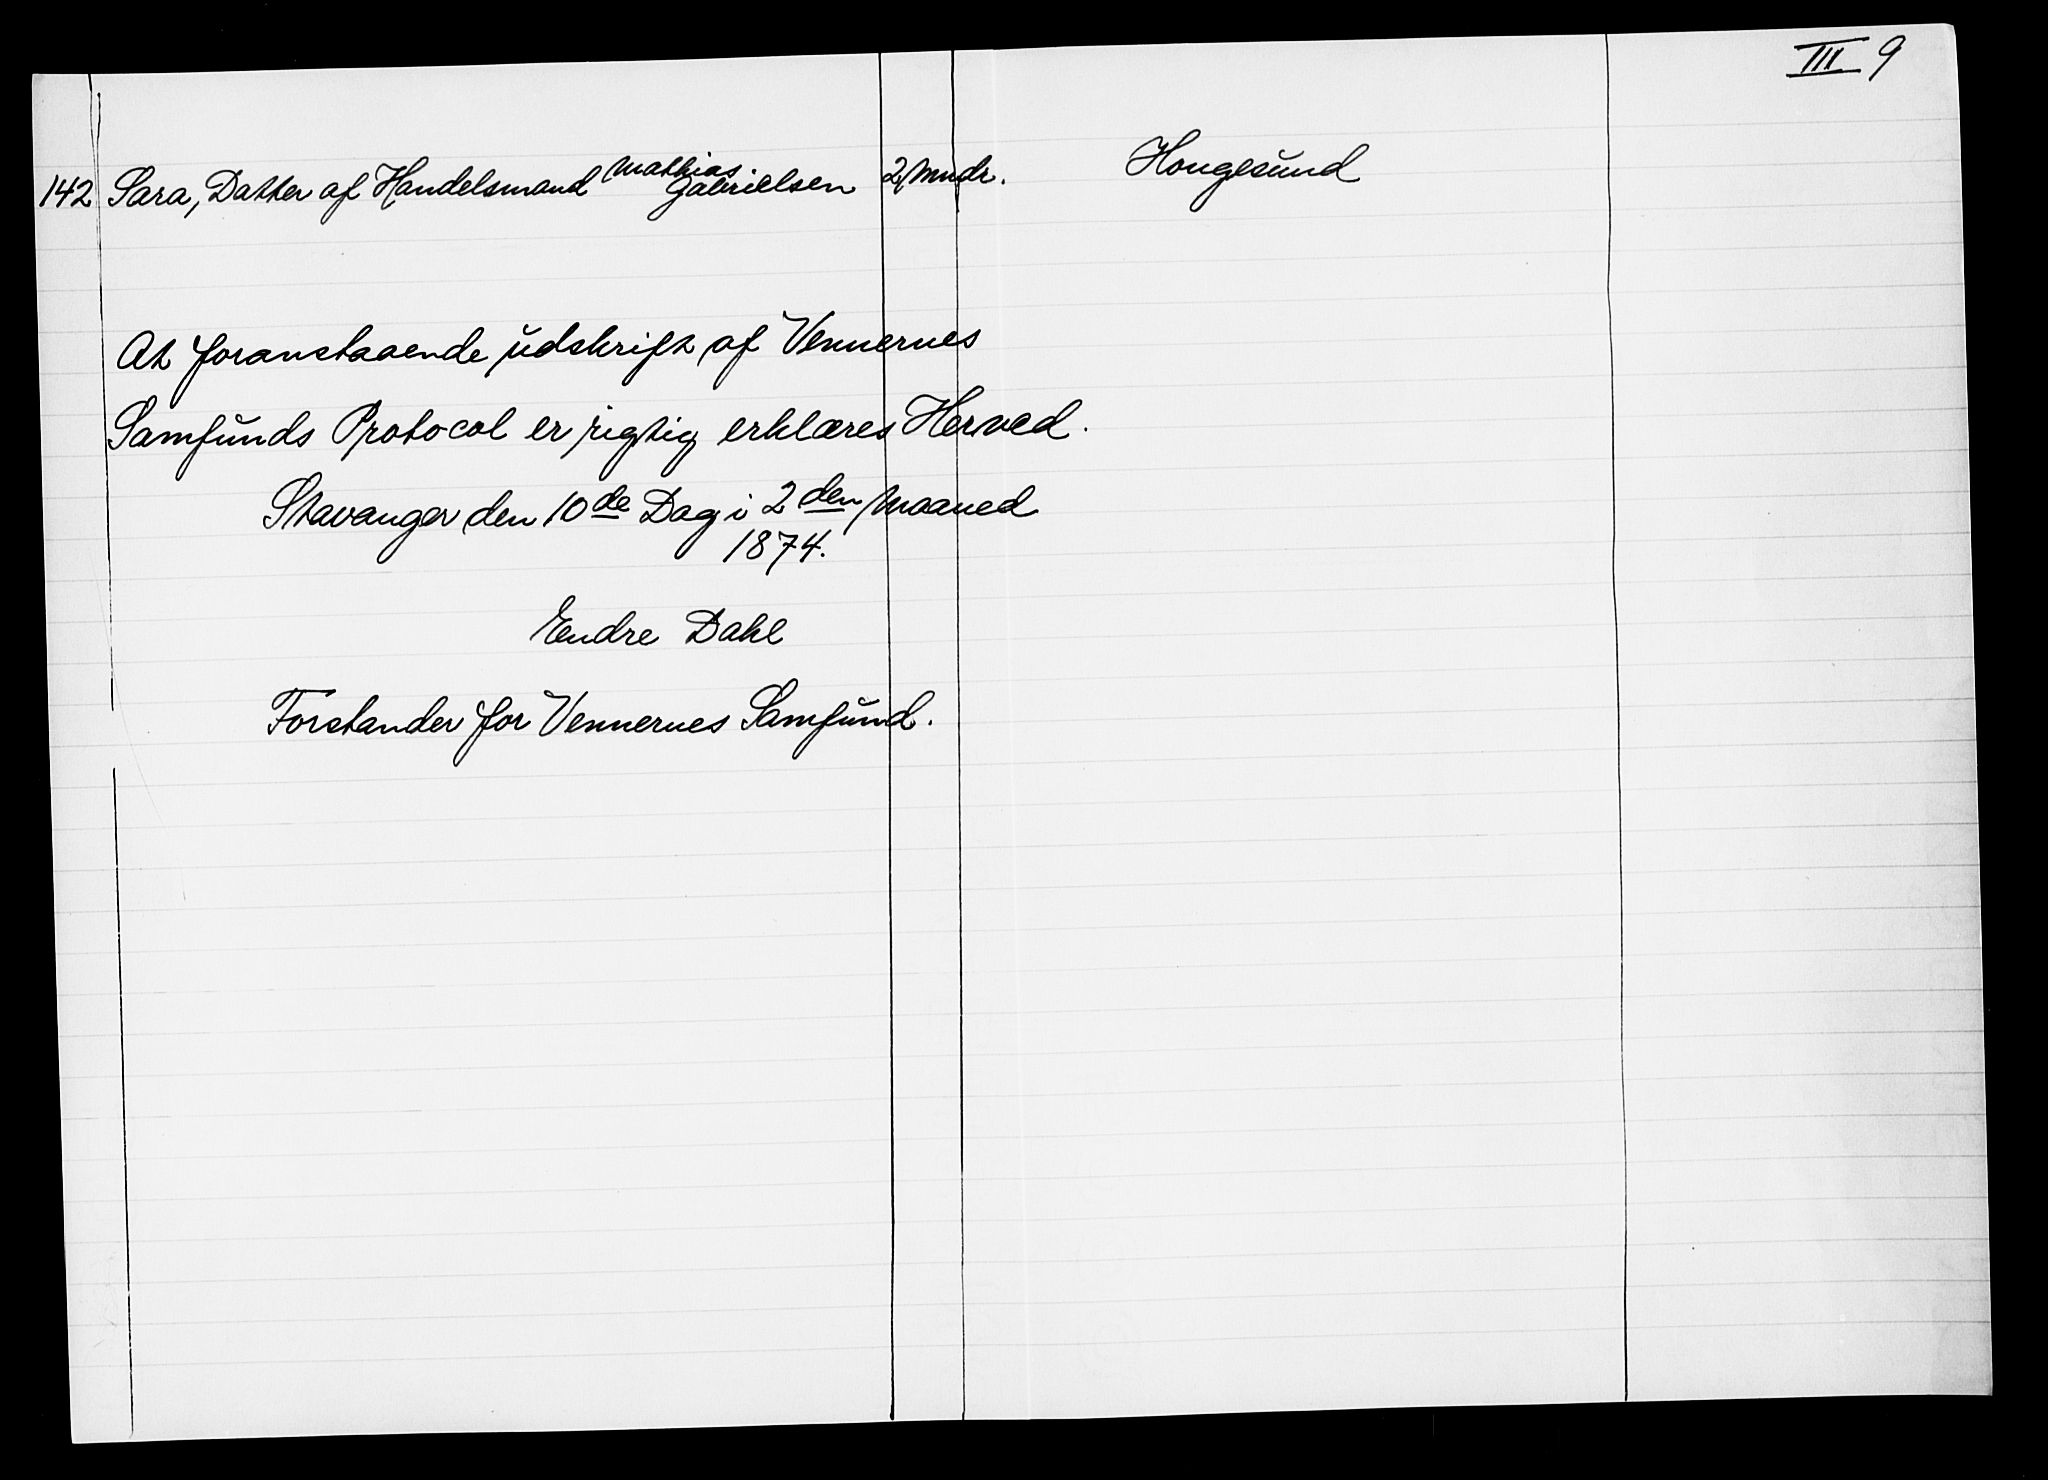 III 9
142 Sara, Datter af Handelsmand Mathias Gabrielsen 2 Mndr. Hougesund
At foranstaaende udskrift af Vennernes
Samfunds Protocol er rigtig erklæres Herved.
Stavanger den 10de Dag i 2den Maaned
1874.
Endre Dahl
Forstander for Vennernes Samfund.